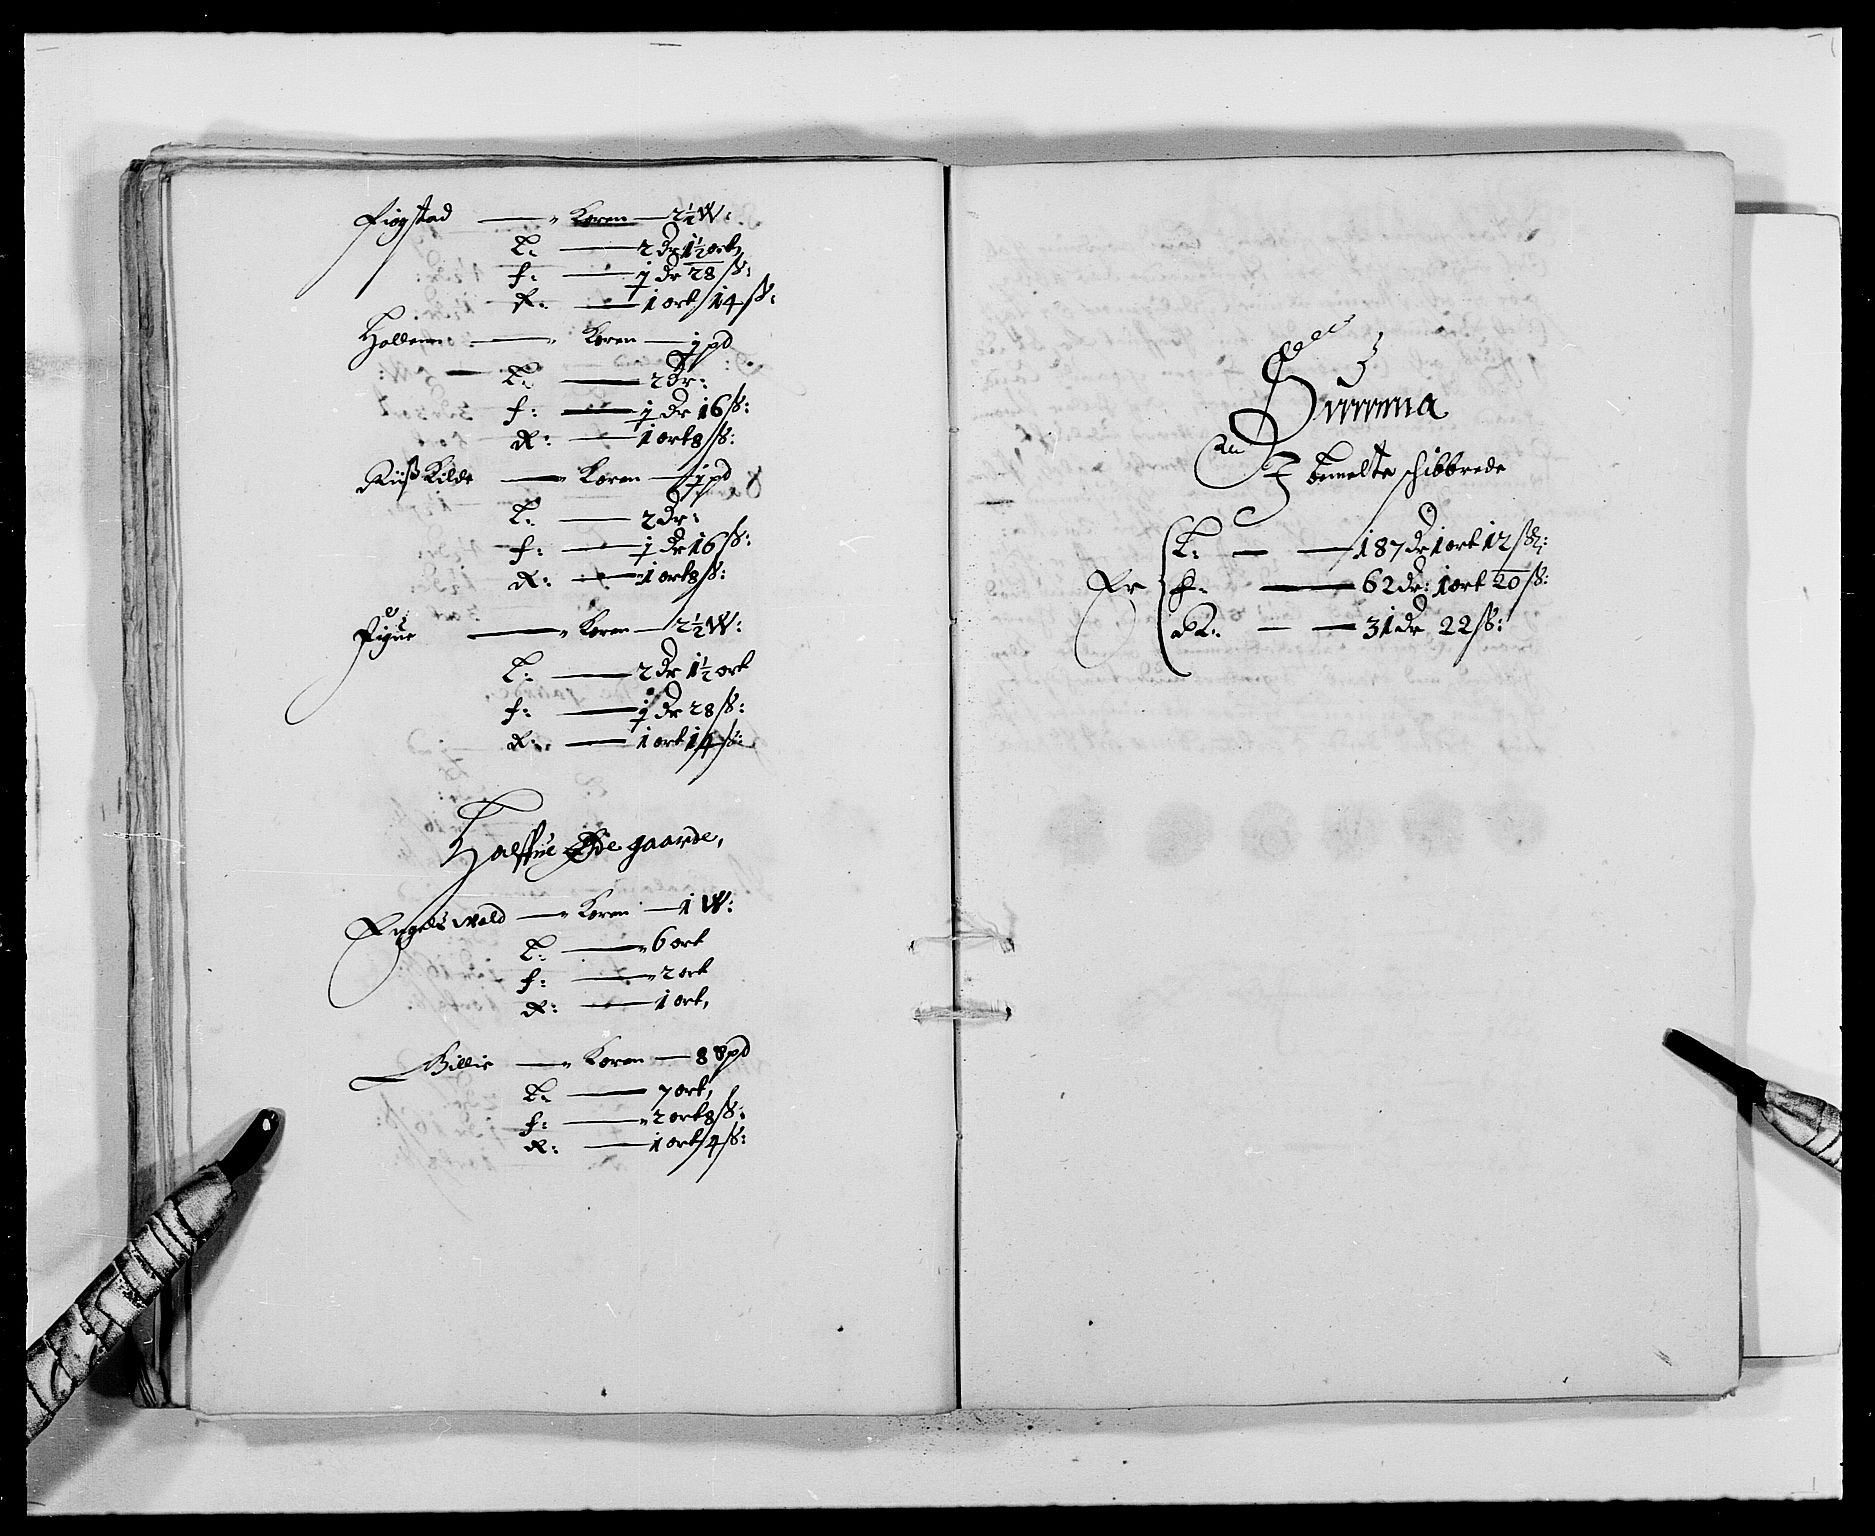 Fiøgstad — Koren — 2½ W:
L: — 2 dr 1½ ort,
f: — 1 dr 28 ß:
R: — 1 ort 14 ß:
Hollenn — Koren — 1 pd
L: — 2 dr:
f: — 1 dr 16 ß:
R: — 1 ort 8 ß:
Riiß Kilde — Koren — 1 pd
L: — 2 dr:
f: — 1 dr 16 ß:
R: — 1 ort 8 ß:
— Koren — 2½ W:
L: — 2 dr 1½ ort
f: — 1 dr 28 ß:
R: — 1 ort 14 ß:
Halffue Øde gaarde,
Engelsvold — Koren — 1 W:
L: — 6 ort
f: — 2 ort
R: — 1 ort,
Billie — Koren — 8 pd
L: — 7 ort,
f: — 2 ort 8 ß:
R: — 1 ort 4 ß:
Summa
I bemelte schibbrede
Er
L: — 187 dr 1 ort 12 ß:
f: — 62 dr: 1 ort 20 ß:
R: — 31 dr 22 ß: